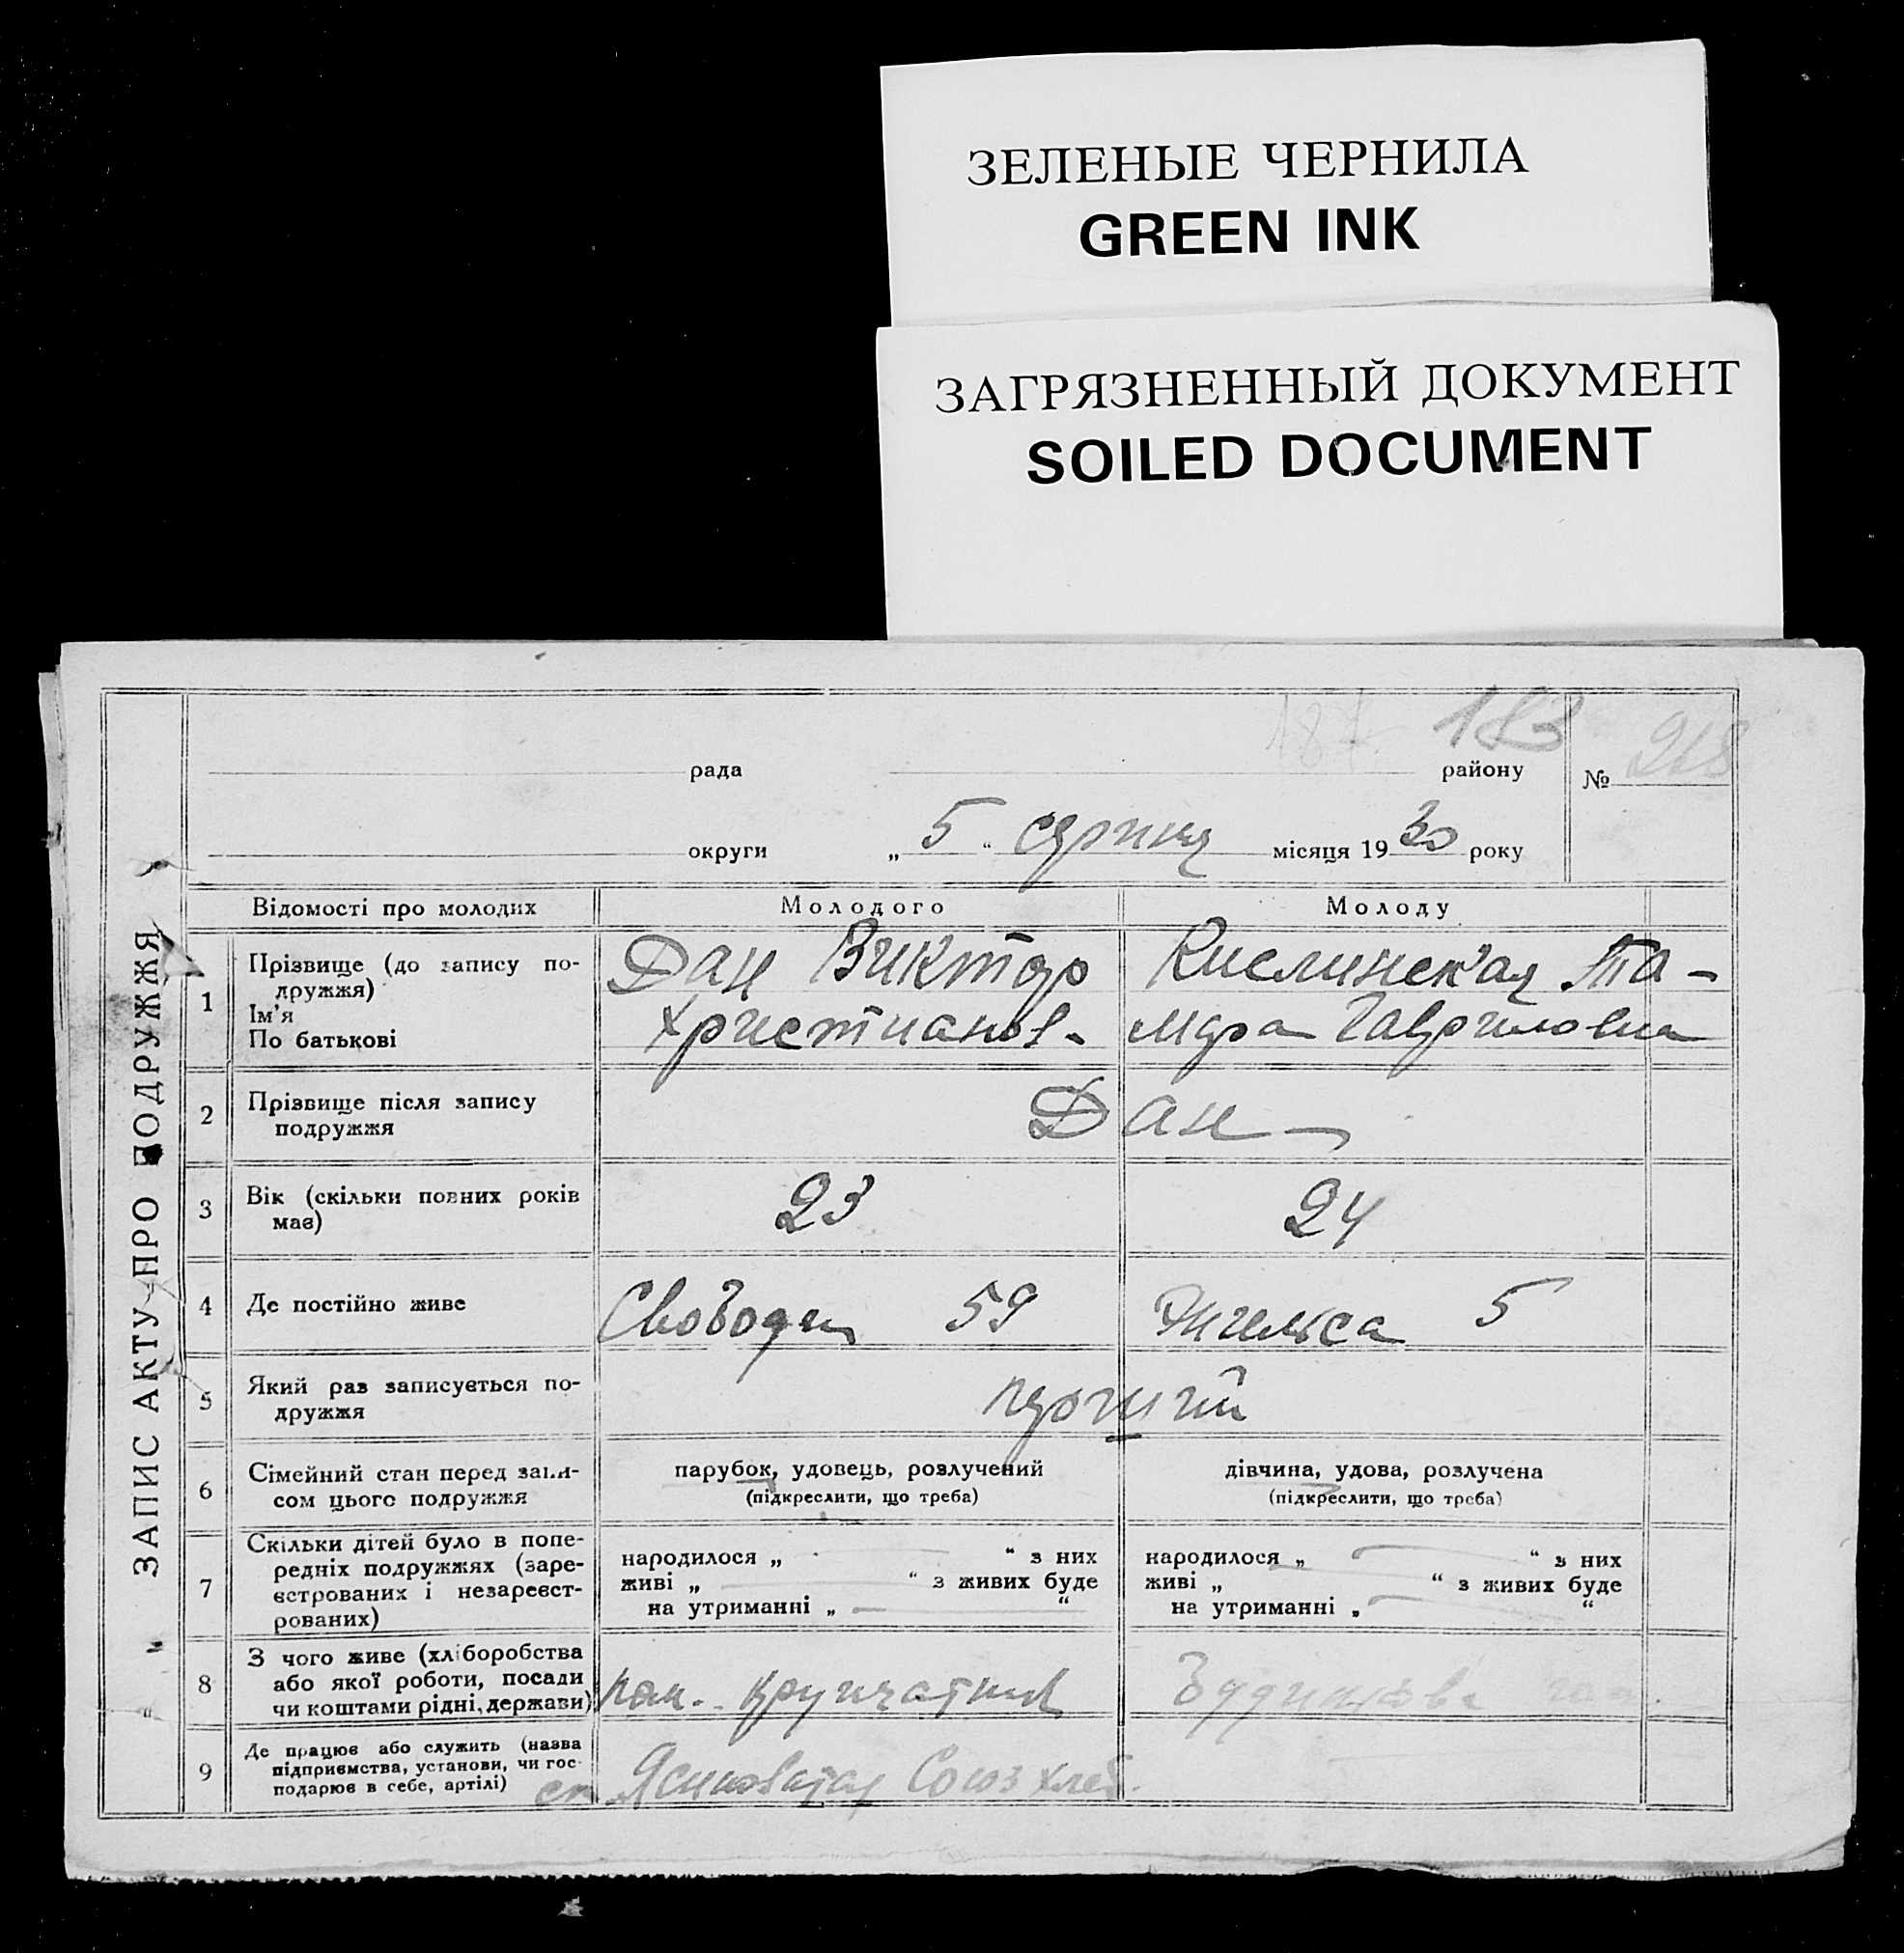 ЗЕЛЕНЫЕ ЧЕРНИЛА
GREEN INK
ЗАГРЯЗНЕННЫЙ ДОКУМЕНТ
SOILED DOCUMENT
ЗАПИС АКТУ ПРО ПОДРУЖЖЯ
187 183
рада району № 218
округи „ 5 “ серпня місяця 1930 року
Відомості про молодих Молодого Молоду
1 Прізвище (до запису по-
дружжя)
Ім’я
По батькові
Дан Виктор
Христианов-
Кислинская Та-
мара Гавриловна
2 Прізвище після запису
подружжя
Дан
3 Вік (скільки повних років
має)
23 24
4 Де постійно живе Свободи 59 Энгельса 5
5 Який раз записується по-
дружжя
перший
6 Сімейний стан перед запи-
сом цього подружжя
парубок, удовець, розлучений
(підкреслити, що треба)
дівчина, удова, розлучена
(підкреслити, що треба)
7 Скільки дітей було в попе-
редніх подружжях (заре-
єстрованих і незареєст-
рованих)
народилося „ “ з них
живі „ “ з живих буде
на утриманні „ “
народилося „ “ з них
живі „ “ з живих буде
на утриманні „ “
8 З чого живе (хліборобства
або якої роботи, посади
чи коштами рідні, держави)
9 Де працює або служить (назва
підприємства, установи, чи гос-
подарює в себе, артілі)
ст. Ясиноватая Союзхлеб.